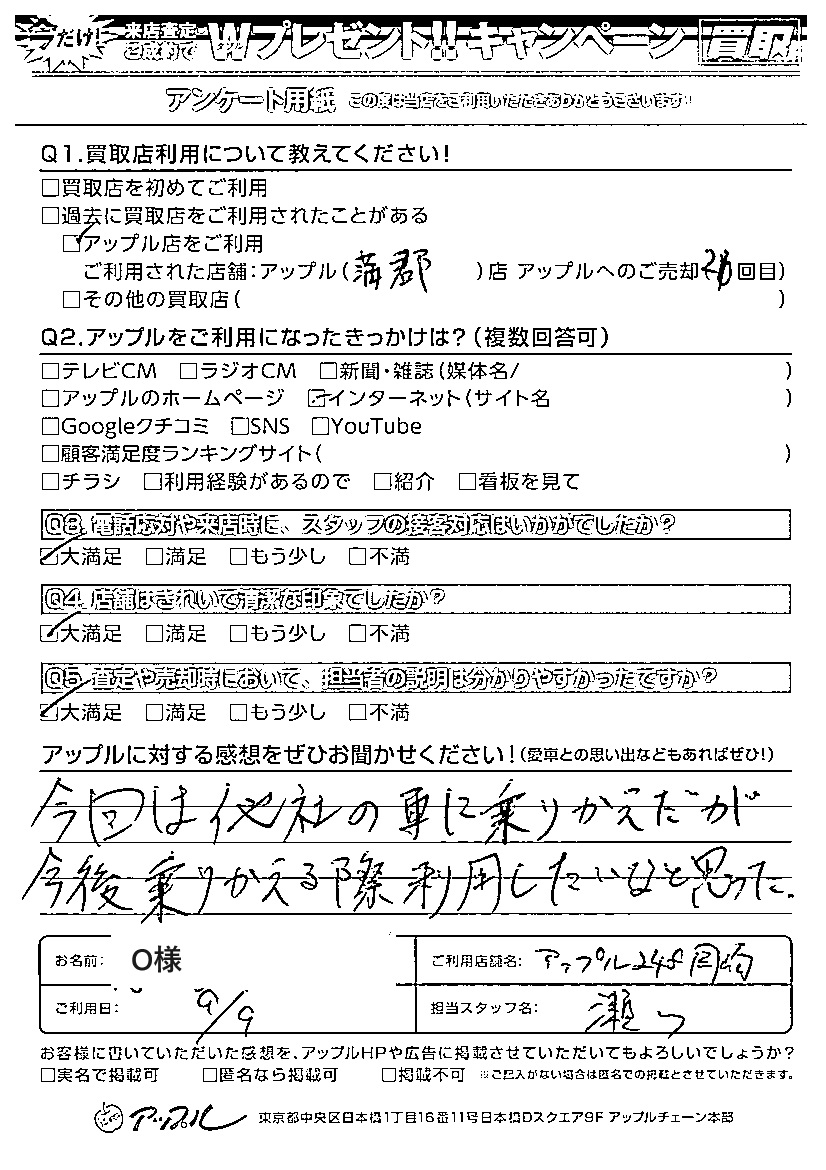 今だけ! 来店査定・ご成約で Wプレゼント!!キャンペーン 買取
アンケート用紙 この度は当店をご利用いただきありがとうございます!
Q1.買取店利用について教えてください!
□買取店を初めてご利用
□過去に買取店をご利用されたことがある
☑アップル店をご利用
ご利用された店舗:アップル(蒲郡 )店 アップルへのご売却( 回目)
□その他の買取店( )
Q2.アップルをご利用になったきっかけは?(複数回答可)
□テレビCM □ラジオCM □新聞・雑誌(媒体名/ )
□アップルのホームページ ☑インターネット(サイト名 )
□Googleクチコミ □SNS □YouTube
□顧客満足度ランキングサイト( )
□チラシ □利用経験があるので □紹介 □看板を見て
Q3.電話応対や来店時に、スタッフの接客対応はいかがでしたか?
☑大満足 □満足 □もう少し □不満
Q4.店舗はきれいで清潔な印象でしたか?
☑大満足 □満足 □もう少し □不満
Q5.査定や売却時において、担当者の説明は分かりやすかったですか?
☑大満足 □満足 □もう少し □不満
アップルに対する感想をぜひお聞かせください!(愛車との思い出などもあればぜひ!)
今回は他社の車に乗りかえだが
今後乗りかえる際利用したいなと思った.
お名前: O様 ご利用店舗名: アップル248
ご利用日: 9/9 担当スタッフ名:
お客様に書いていただいた感想を、アップルHPや広告に掲載させていただいてもよろしいでしょうか?
□実名で掲載可 □匿名なら掲載可 □掲載不可 ※ご記入がない場合は匿名での掲載とさせていただきます。
アップル 東京都中央区日本橋1丁目16番11号日本橋Dスクエア9F アップルチェーン本部